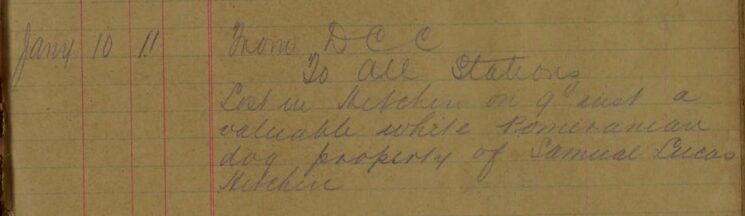 Jany 10 11 From D C C
To All Stations
Lost in Hitchin on 9th inst a
valuable white Pomeranian
dog property of Samuel Lucas
Hitchin